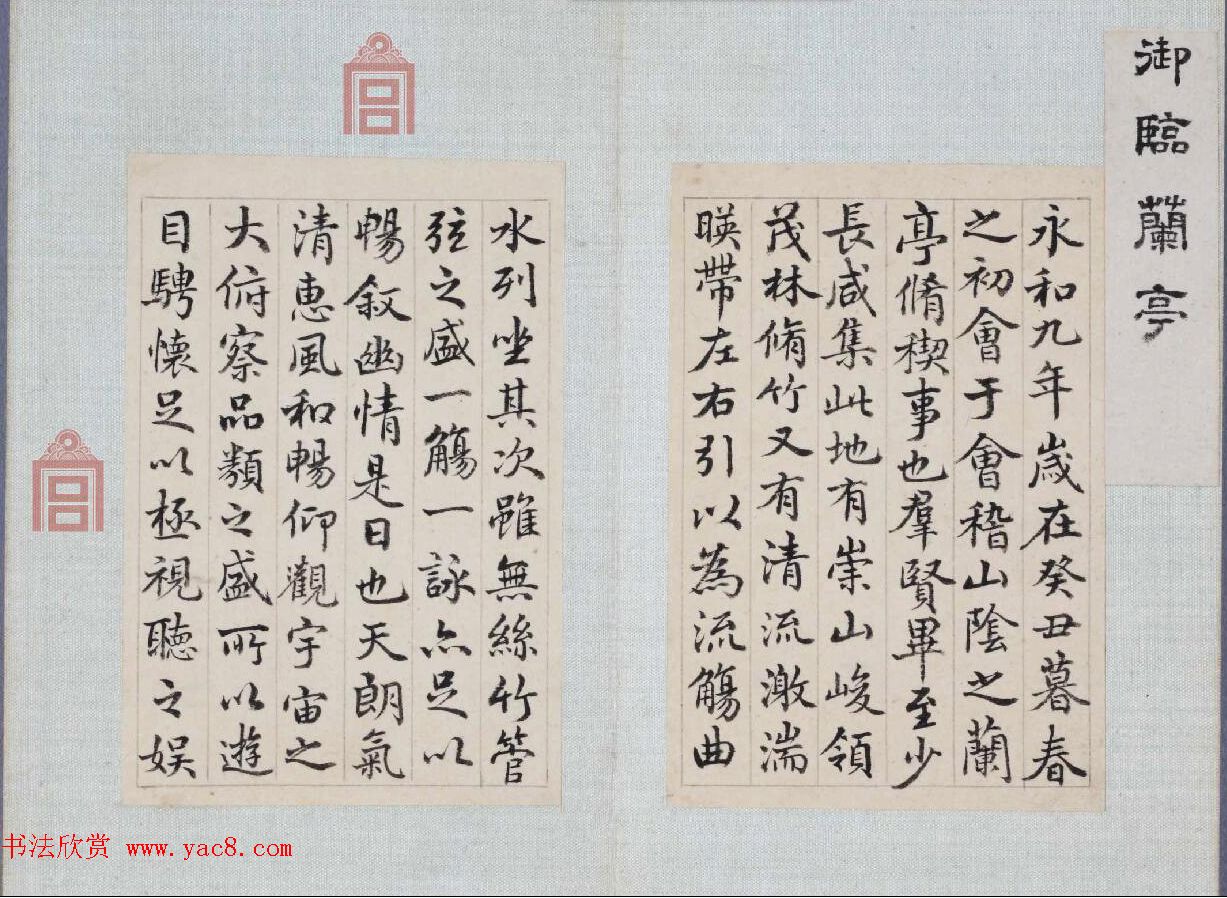 御臨蘭亭
永和九年歲在癸丑暮春
之初會于會稽山陰之蘭
亭脩稧事也羣賢畢至少
長咸集此地有崇山峻領
茂林脩竹又有清流激湍
暎帶左右引以為流觴曲
水列坐其次雖無絲竹管
弦之盛一觴一詠亦足以
暢敘幽情是日也天朗氣
清惠風和暢仰觀宇宙之
大俯察品類之盛所以遊
目騁懷足以極視聽之娱
书法欣赏 www.yac8.com